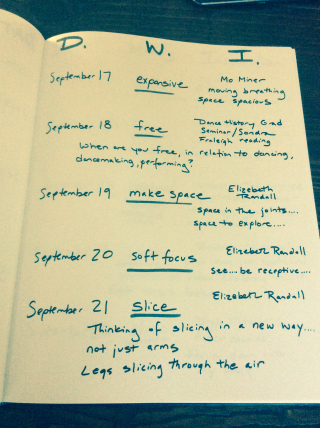 D. W. I.
September 17 expansive Mo Miner
moving breathing
space spacious
September 18 free Dance History Grad
Seminar/Sondra
Fraleigh reading
When are you free, in relation to dancing,
dancemaking, performing?
September 19 make space Elizabeth
Randall
space in the joints....
space to explore....
September 20 soft focus Elizabeth Randall
see....be receptive....
September 21 slice Elizabeth Randall
Thinking of slicing in a new way....
not just arms
Legs slicing through the air